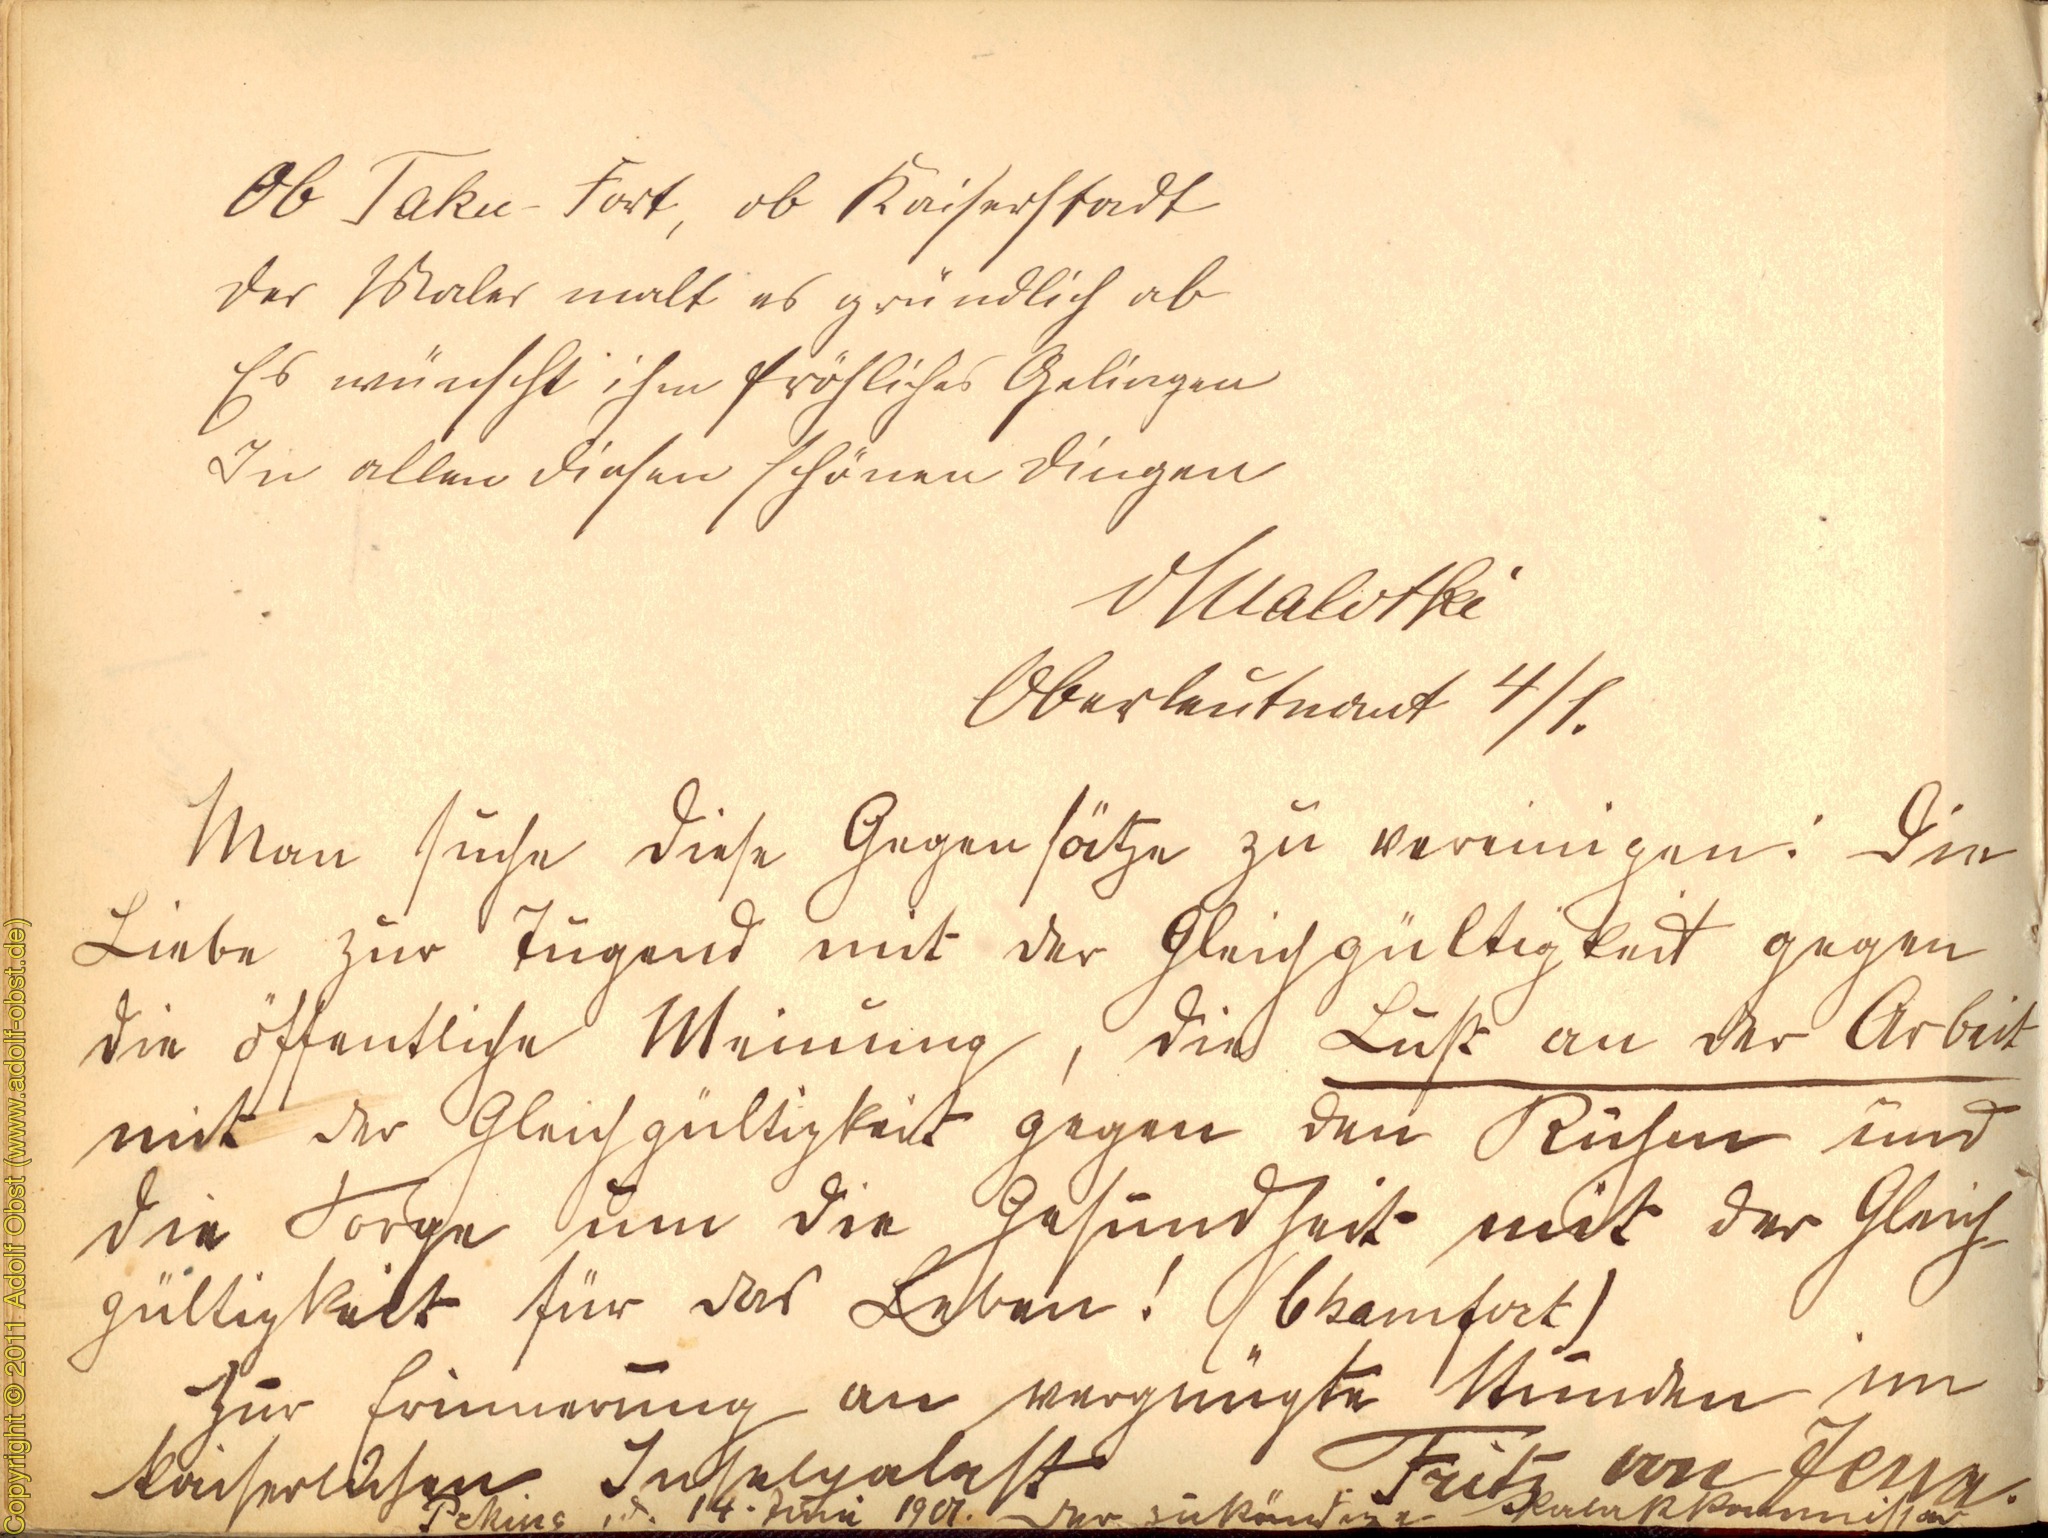 Ob Taku-Fort, ob Kaiserstadt
der Maler malt es gründlich ab
Es wünscht ihm fröhliches Gelingen
In allen diesen schönen Dingen
Malotki
Oberleutnant 4/1.
Man suche diese Gegensätze zu vereinigen: Die
Liebe zur Tugend mit der Gleichgültigkeit gegen
die öffentliche Meinung, die Lust an der Arbeit
mit der Gleichgültigkeit gegen den Ruhm und
die Sorge um die Gesundheit mit der Gleich-
gültigkeit für das Leben! (Chamfort)
Zur Erinnerung an vergnügte Stunden im
kaiserlichen Inselpalast Fritz von Jena.
Peking, d. 14. Juni 1901. Der
Copyright © 2011 Adolf Obst (www.adolf-obst.de)